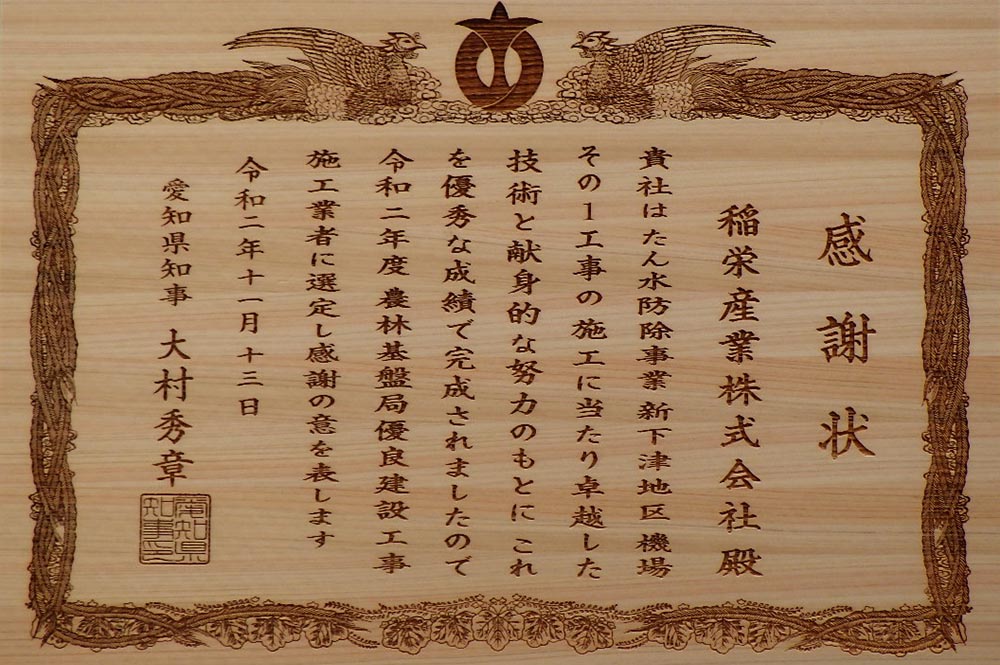 感謝状
稲栄産業株式会社 殿
貴社はたん水防除事業 新下津地区 機場
その1工事の施工に当たり卓越した
技術と献身的な努力のもとに これ
を優秀な成績で完成されましたので
令和二年度 農林基盤局優良建設工事
施工業者に選定し感謝の意を表します
令和二年十一月十三日
愛知県知事 大村秀章
愛知県知事之印